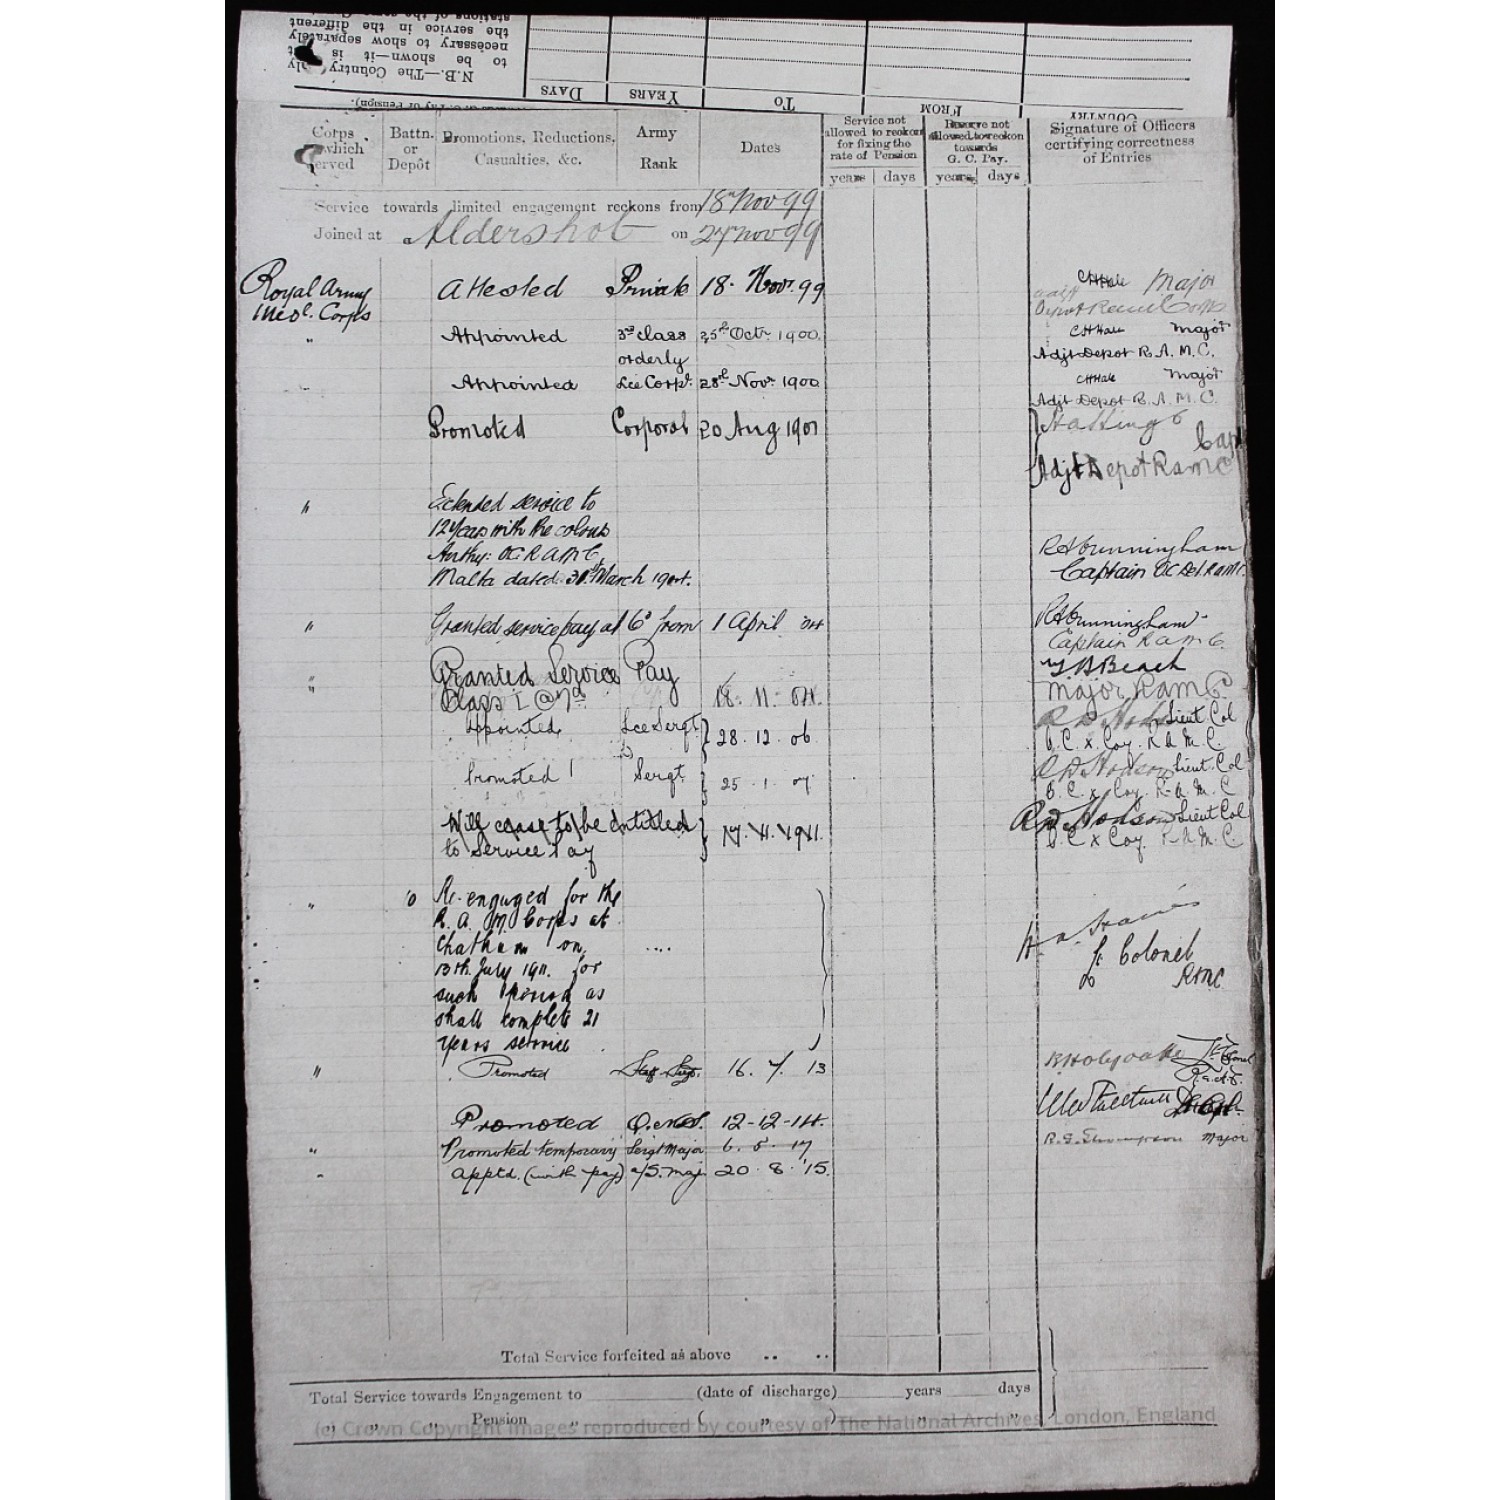 N.B.—The Country is
to be shown—it is
necessary to show separately
the service in the different
stations of the same
COUNTRY FROM TO YEARS DAYS
Corps in which served
Battn. or Depôt
Promotions, Reductions, Casualties, &c.
Army Rank
Dates
Service not allowed to reckon for fixing the rate of Pension
Reserve not allowed to reckon towards G. C. Pay.
Signature of Officers certifying correctness of Entries
years days years days
Service towards limited engagement reckons from 18 Nov 99
Joined at Aldershot on 27 Nov 99
Royal Army Attested Private 18. Novr. 99 CHHale Major
Medl. Corps
" Appointed 3rd class 25th Octr. 1900. CHHale Major
orderly Adjt Depot R. A. M. C.
Appointed Lce Corpl. 28th Novr. 1900 CHHale Major
Adjt Depot R. A. M. C.
Promoted Corporal 20 Aug 1901 Hastings
Capt
Adjt Depot RAMC
" Extended service to
12 Years with the colours
Authy: OC. RAMC, RHCunningham
Malta dated 31st March 1904. Captain OC Det. RAMC
" Granted service pay at 6d from 1 April 04 RHCunningham
Captain RAMC
" Granted Service Pay Beach
" Class I @ 7d 18. 11. 04. Major RAMC
Appointed Lce Sergt 28. 12. 06 Hodson Lieut. Col
O. C. x Coy. R. A. M. C.
Promoted Sergt 25. 1. 07 Hodson Lieut. Col
O. C. x Coy. R. A. M. C
Will cease to be entitled 17. 11. 1911. Hodson Lieut Col
to Service Pay O. C x Coy. R. A. M. C.
" Re-engaged for the
R. A. M. Corps at
Chatham on
13th July 1911. for Lt Colonel
such period as RAMC
shall complete 21
Years service
" Promoted Staff Sergt. 16. 7. 13
Promoted Q.M.S. 12-12-14.
" Promoted temporary Sergt Major 6. 5. 17 Thompson Major
" apptd. (with pay) a/S. Maj. 20. 8. '15.
Total Service forfeited as above .. ..
Total Service towards Engagement to (date of discharge) years days
" " Pension " ( " ) " "
(c) Crown Copyright Images reproduced by courtesy of The National Archives, London, England